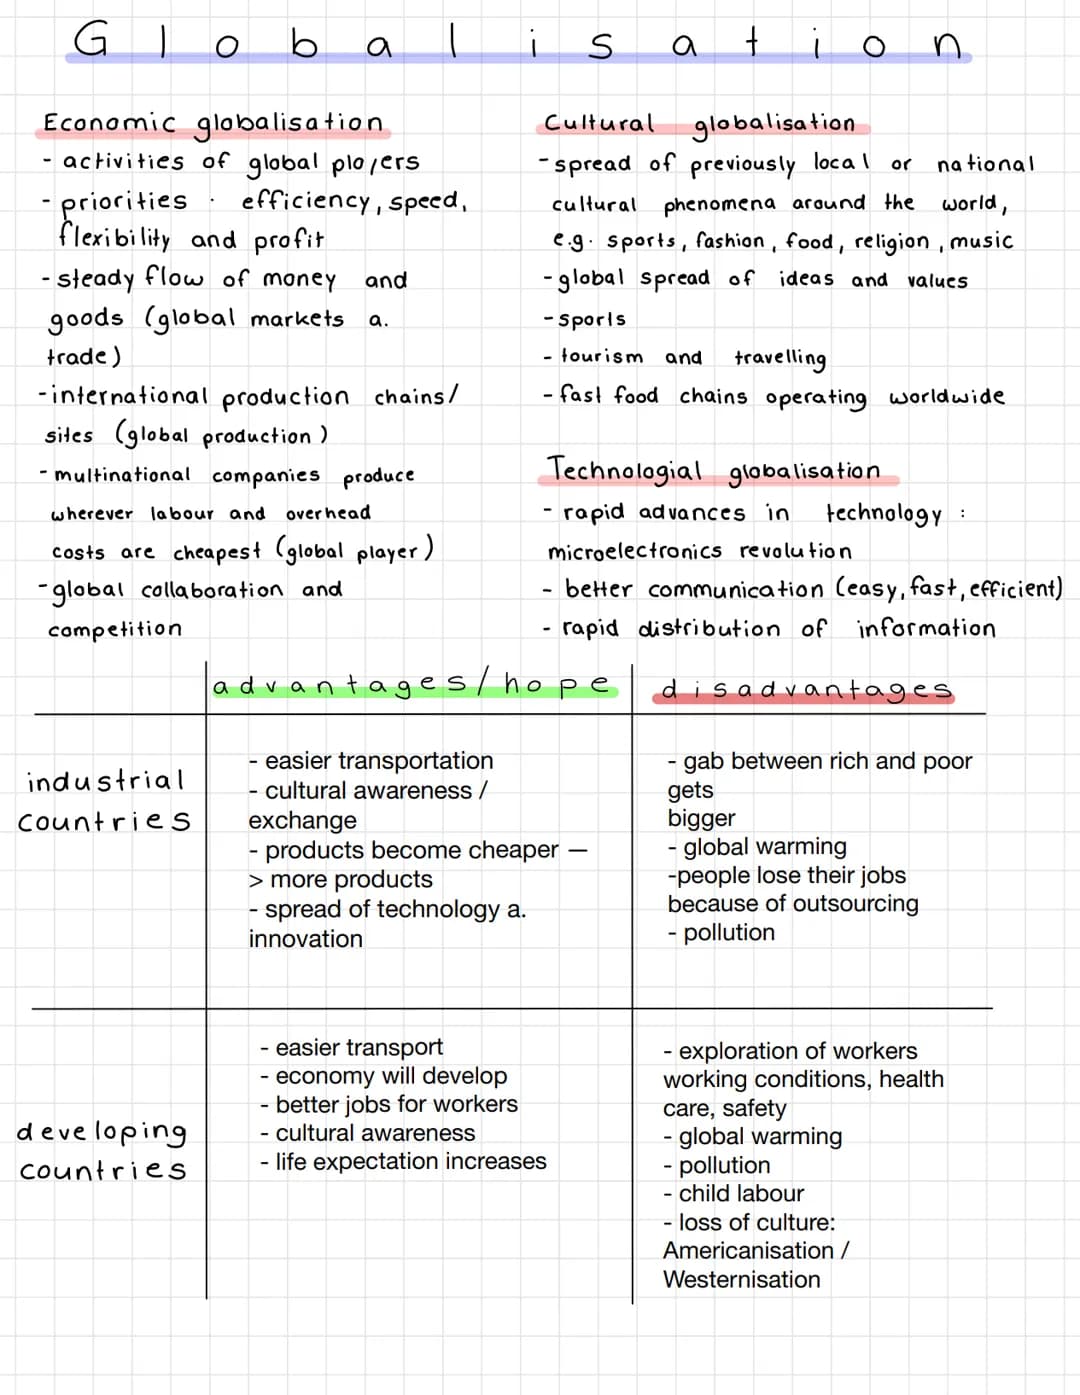 Globalisation
Economic globalisation
- activities of global players
- priorities : efficiency, speed,
flexibility and profit
- steady flow of money and
goods (global markets a.
trade)
- international production chains/
sites (global production)
- multinational companies produce
wherever labour and overhead
costs are cheapest (global player)
- global collaboration and
competition
Cultural globalisation
- spread of previously local or national
cultural phenomena around the world,
e.g. sports, fashion, food, religion, music
- global spread of ideas and values
- sports
- tourism and travelling
- fast food chains operating worldwide
Technologial globalisation
- rapid advances in technology :
microelectronics revolution
- better communication (easy, fast, efficient)
- rapid distribution of information
advantages/hope
disadvantages
industrial
countries
- easier transportation
- cultural awareness /
exchange
- products become cheaper —
> more products
- spread of technology a.
innovation
- gab between rich and poor
gets
bigger
- global warming
-people lose their jobs
because of outsourcing
- pollution
developing
countries
- easier transport
- economy will develop
- better jobs for workers
- cultural awareness
- life expectation increases
- exploration of workers
working conditions, health
care, safety
- global warming
- pollution
- child labour
- loss of culture:
Americanisation /
Westernisation